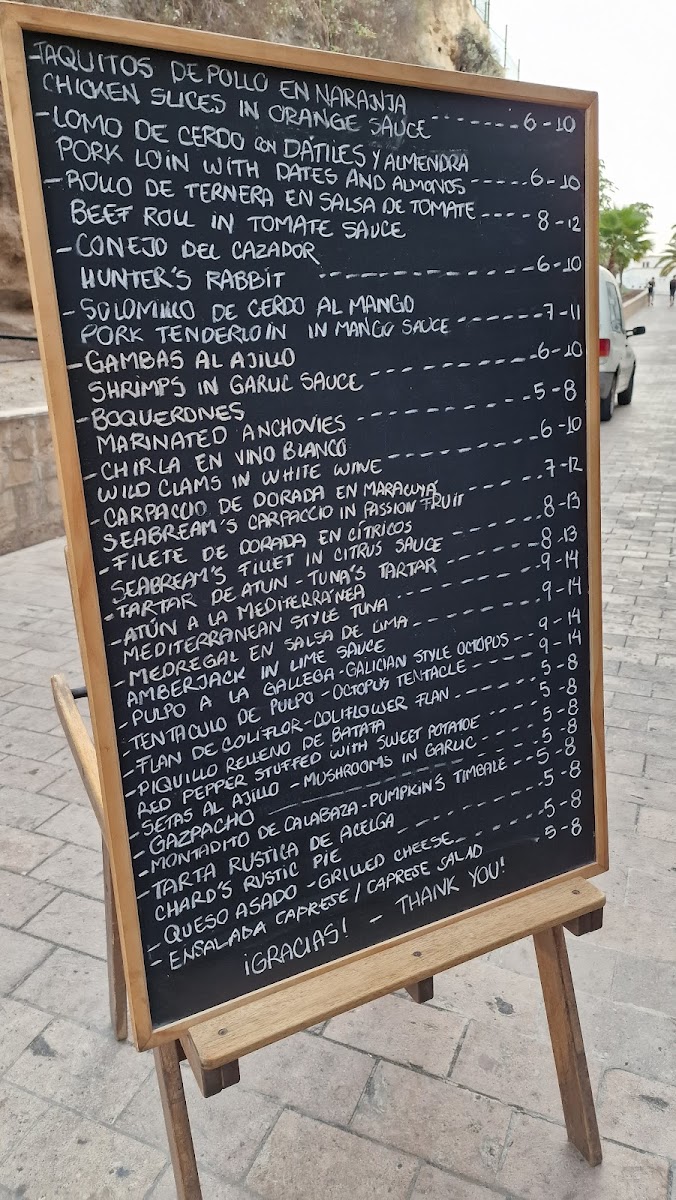 -TAQUITOS DE POLLO EN NARANJA
CHICKEN SLICES IN ORANGE SAUCE ------- 6-10
-LOMO DE CERDO con DÁTILES Y ALMENDRA
PORK LOIN WITH DATES AND ALMONDS ----- 6-10
-ROLLO DE TERNERA EN SALSA DE TOMATE
BEEF ROLL IN TOMATE SAUCE ---- 8-12
-CONEJO DEL CAZADOR
HUNTER'S RABBIT ---------------- 6-10
-SOLOMILLO DE CERDO AL MANGO
PORK TENDERLOIN IN MANGO SAUCE ------- 7-11
-GAMBAS AL AJILLO
SHRIMPS IN GARLIC SAUCE ------------ 6-10
-BOQUERONES
MARINATED ANCHOVIES ------------- 5-8
-CHIRLA EN VINO BLANCO
WILD CLAMS IN WHITE WINE ----------- 6-10
-CARPACCIO DE DORADA EN MARACUYÁ
SEABREAM'S CARPACCIO IN PASSION FRUIT ------ 7-12
-FILETE DE DORADA EN CÍTRICOS
SEABREAM'S FILLET IN CITRUS SAUCE ------- 8-13
-TARTAR DE ATUN - TUNA'S TARTAR ------- 8-13
-ATÚN A LA MEDITERRÁNEA
MEDITERRANEAN STYLE TUNA ---------- 9-14
-MEDREGAL EN SALSA DE LIMA
AMBERJACK IN LIME SAUCE --------- 9-14
-PULPO A LA GALLEGA-GALICIAN STYLE OCTOPUS -- 9-14
-TENTACULO DE PULPO - OCTOPUS TENTACLE ---- 9-14
-FLAN DE COLIFLOR-COLIFLOWER FLAN ------ 5-8
-PIQUILLO RELLENO DE BATATA
RED PEPPER STUFFED WITH SWEET POTATOE ---- 5-8
-SETAS AL AJILLO - MUSHROOMS IN GARLIC ---- 5-8
-GAZPACHO ------------------ 5-8
-MONTADITO DE CALABAZA-PUMPKIN'S TIMBALE -- 5-8
-TARTA RUSTICA DE ACELGA
CHARD'S RUSTIC PIE ---------- 5-8
-QUESO ASADO -GRILLED CHEESE ------- 5-8
-ENSALADA CAPRESE / CAPRESE SALAD ----- 5-8
¡GRACIAS! - THANK YOU!